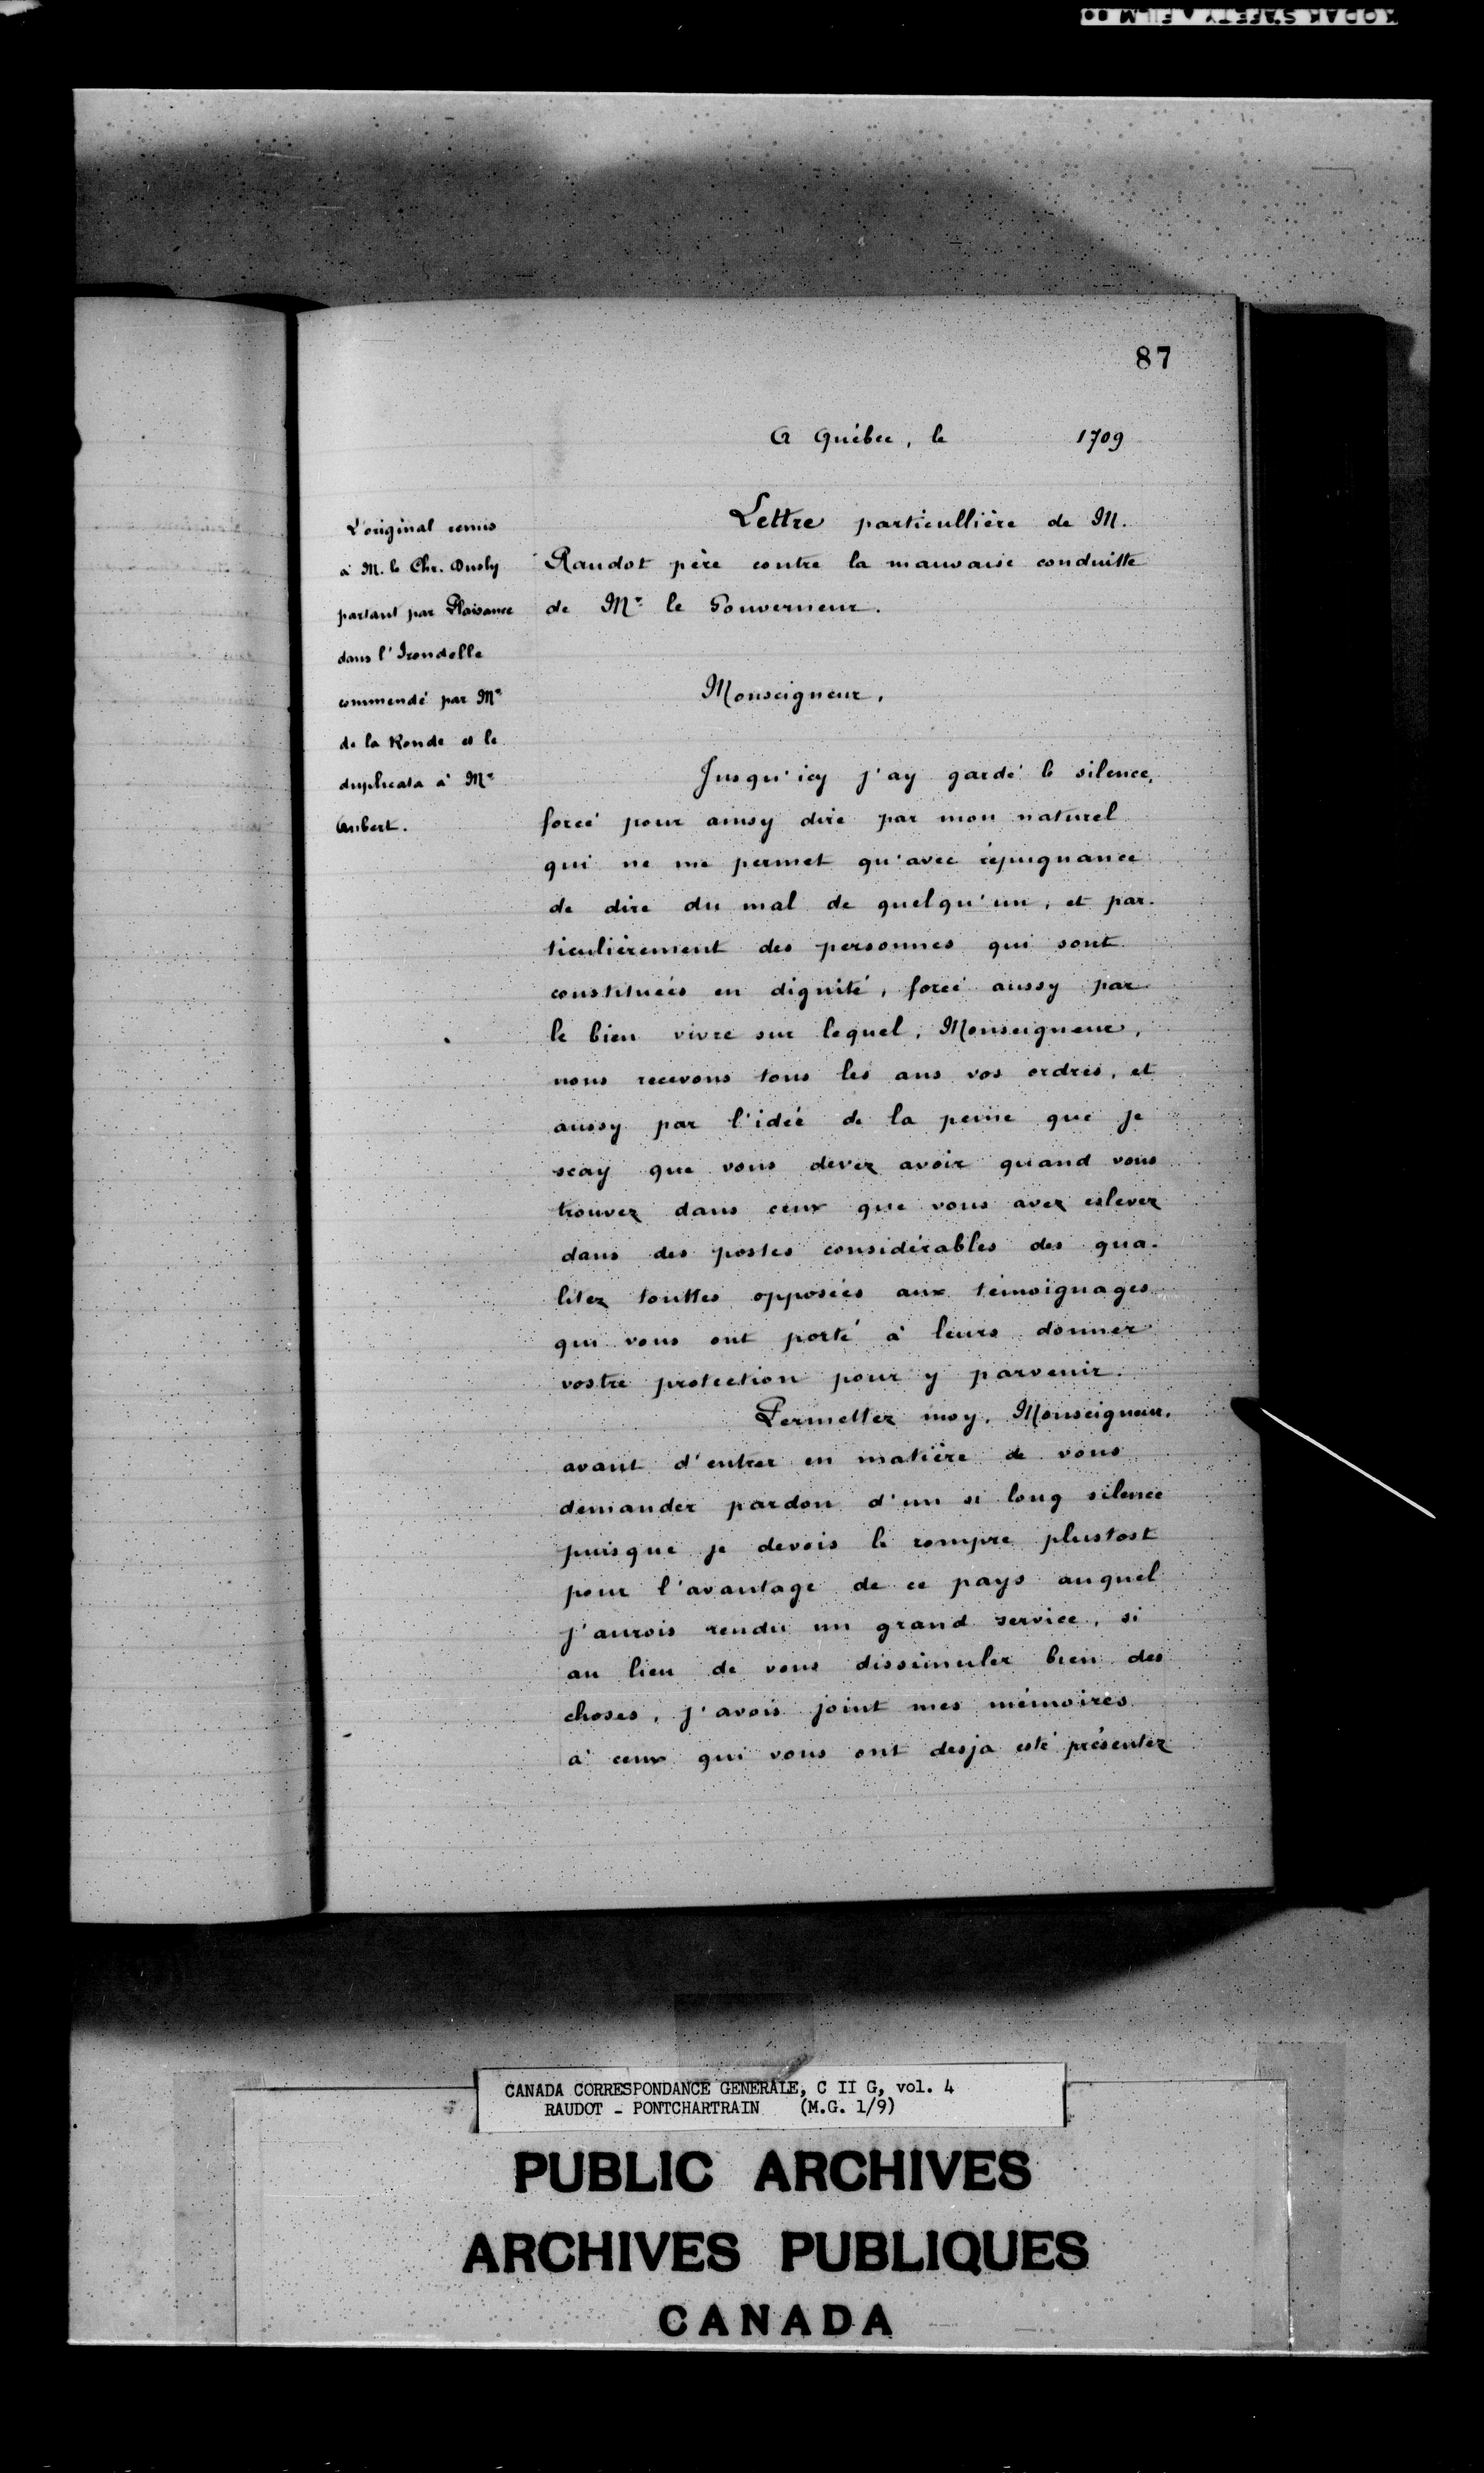 KODAK SAFETY FILM
87
A Québec, le 1709
L'original remis
à M. le Chr. Dusly
partant par Plaisance
dans l'Irondelle
commendé par Mr
de la Ronde et le
duplicata à Mr
Aubert.
Lettre particullière de M.
Raudot père contre la mauvaise conduitte
de Mr le Gouverneur.
Monseigneur,
Jusqu'icy j'ay gardé le silence,
forcé pour ainsy dire par mon naturel
qui ne me permet qu'avec répugnance
de dire du mal de quelqu'un, et par-
ticulièrement des personnes qui sont
constituées en dignité, forcé aussy par
le bien vivre sur lequel, Monseigneur,
nous recevons tous les ans vos ordres, et
aussy par l'idée de la peine que je
scay que vous devez avoir quand vous
trouvez dans ceux que vous avez eslevez
dans des postes considérables des qua-
litez touttes opposées aux témoignages
qui vous ont porté à leurs donner
vostre protection pour y parvenir.
Permettez moy, Monseigneur,
avant d'entrer en matière de vous
demander pardon d'un si long silence
puisque je devois le rompre plustost
pour l'avantage de ce pays auquel
j'aurois rendu un grand service, si
au lieu de vous dissimuler bien des
choses, j'avois joint mes mémoires
à ceux qui vous ont desja esté présentez
CANADA CORRESPONDANCE GENERALE, C II G, vol. 4
RAUDOT - PONTCHARTRAIN (M.G. 1/9)
PUBLIC ARCHIVES
ARCHIVES PUBLIQUES
CANADA